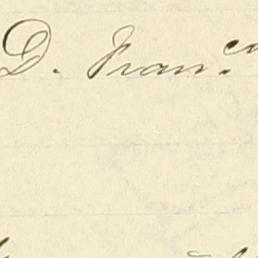 D. Fran.co